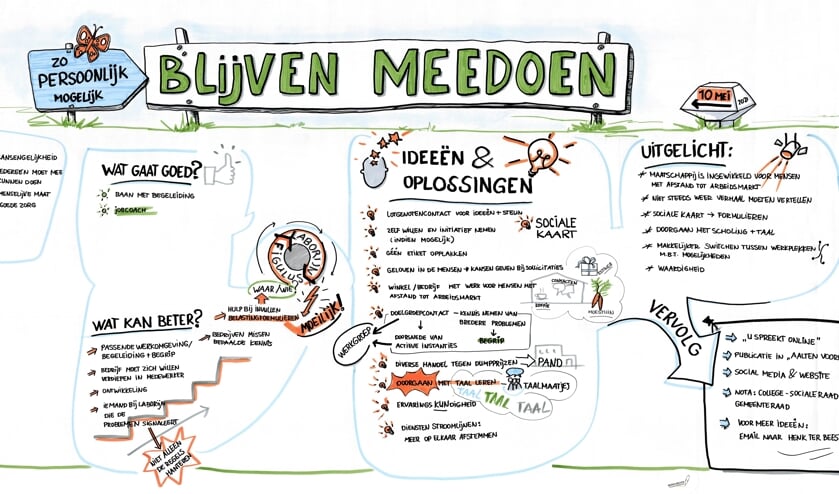 ZO
PERSOONLIJK
MOGELIJK
BLIJVEN MEEDOEN
10 MEI
ANSENGELIJKHEID
EDEREEN MOET MEE
KUNNEN DOEN
MENSELIJKE MAAT
GOEDE ZORG
WAT GAAT GOED?
BAAN MET BEGELEIDING
JOBCOACH
WAT KAN BETER?
PASSENDE WERKOMGEVING/
BEGELEIDING + BEGRIP
BEDRIJF MOET ZICH WILLEN
VERDIEPEN IN MEDEWERKER
ONTWIKKELING
IEMAND BIJ LABORIJN
DIE DE
PROBLEMEN SIGNALEERT
NIET ALLEEN
DE REGELS
HANTEREN
LABORIJN
FIGULUS
WAAR/WIE
HULP BIJ INVULLEN
BELASTINGFORMULIEREN
MOEILIJK!
BEDRIJVEN MISSEN
BEPAALDE KENNIS
IDEEËN &
OPLOSSINGEN
LOTGENOTENCONTACT VOOR IDEEËN + STEUN
ZELF WILLEN EN INITIATIEF NEMEN
(INDIEN MOGELIJK)
SOCIALE
KAART
GÉÉN ETIKET OPPLAKKEN
GELOVEN IN DE MENSEN → KANSEN GEVEN BIJ SOLLICITATIES
WINKEL/BEDRIJF MET WERK VOOR MENSEN MET
AFSTAND TOT ARBEIDSMARKT
CONTACTEN
KOFFIE
MOESTUIN
DOELGROEPCONTACT – KENNIS NEMEN VAN
BREDERE PROBLEMEN
DOORSNEDE VAN
ACTIEVE INSTANTIES
BEGRIP
WERKGROEP
DIVERSE HANDEL TEGEN DUMPPRIJZEN
PAND
DOORGAAN MET TAAL LEREN
TAALMAATJE
TAAL TAAL TAAL
ERVARINGSKUNDIGHEID
DIENSTEN STROOMLIJNEN:
MEER OP ELKAAR AFSTEMMEN
UITGELICHT:
MAATSCHAPPIJ IS INGEWIKKELD VOOR MENSEN
MET AFSTAND TOT ARBEIDSMARKT
NIET STEEDS WEER VERHAAL MOETEN VERTELLEN
SOCIALE KAART → FORMULIEREN
DOORGAAN MET SCHOLING + TAAL
MAKKELIJKER SWITCHEN TUSSEN WERKPLEKKEN
M.B.T. MOGELIJKHEDEN
WAARDIGHEID
VERVOLG
"U SPREEKT ONLINE"
PUBLICATIE IN "AALTEN VOOR
SOCIAL MEDIA & WEBSITE
NOTA: COLLEGE - SOCIALE RAAD
GEMEENTERAAD
VOOR MEER IDEEËN:
EMAIL NAAR HENK TER BEEST